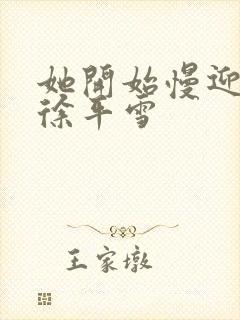 她開始慢迎
徐平雪
王家墩